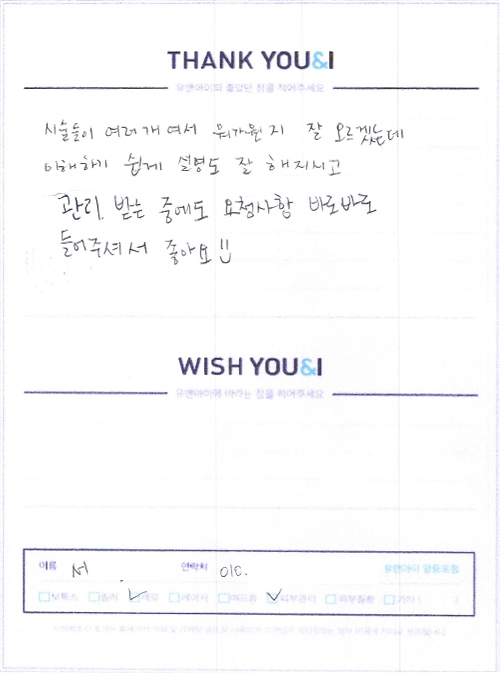 THANK YOU&I
유앤아이의 좋았던 점을 적어주세요
시술들이 여러개여서 뭐가뭔지 잘 모르겠는데
이해하기 쉽게 설명도 잘 해주시고
관리 받는 중에도 요청사항 바로바로
들어주셔서 좋아요!!
WISH YOU&I
유앤아이에 바라는 점을 적어주세요
이름 서 연락처 010. 유앤아이 영등포점
보톡스 필러 제모 레이저 여드름 피부관리 피부질환 기타 (